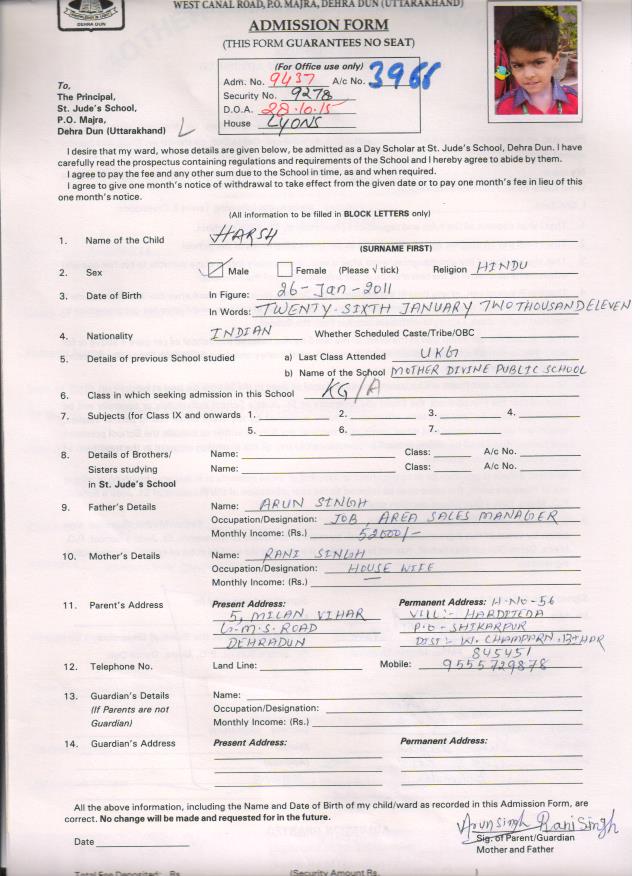 DEHRA DUN
WEST CANAL ROAD, P.O. MAJRA, DEHRA DUN (UTTARAKHAND)
ADMISSION FORM
(THIS FORM GUARANTEES NO SEAT)
(For Office use only)
Adm. No. 9437 A/c No. 3966
Security No. 9278
D.O.A. 28.10.15
House LYONS
To,
The Principal,
St. Jude's School,
P.O. Majra,
Dehra Dun (Uttarakhand)
I desire that my ward, whose details are given below, be admitted as a Day Scholar at St. Jude's School, Dehra Dun. I have
carefully read the prospectus containing regulations and requirements of the School and I hereby agree to abide by them.
I agree to pay the fee and any other sum due to the School in time, as and when required.
I agree to give one month's notice of withdrawal to take effect from the given date or to pay one month's fee in lieu of this
one month's notice.
(All information to be filled in BLOCK LETTERS only)
1. Name of the Child HARSH
(SURNAME FIRST)
2. Sex Male Female (Please √ tick) Religion HINDU
3. Date of Birth In Figure: 26-Jan-2011
In Words: TWENTY-SIXTH JANUARY TWO THOUSAND ELEVEN
4. Nationality INDIAN Whether Scheduled Caste/Tribe/OBC
5. Details of previous School studied a) Last Class Attended UKG
b) Name of the School MOTHER DIVINE PUBLIC SCHOOL
6. Class in which seeking admission in this School KG/A
7. Subjects (for Class IX and onwards 1. 2. 3. 4.
5. 6. 7.
8. Details of Brothers/ Name: Class: A/c No.
Sisters studying Name: Class: A/c No.
in St. Jude's School
9. Father's Details Name: ARUN SINGH
Occupation/Designation: JOB, AREA SALES MANAGER
Monthly Income: (Rs.) 52000/-
10. Mother's Details Name: RANI SINGH
Occupation/Designation: HOUSE WIFE
Monthly Income: (Rs.) —
11. Parent's Address Present Address: Permanent Address: H-NO-56
5, MILAN VIHAR VILL:- HARDITEDA
G-M-S-ROAD P.O- SHIKARPUR
DEHRADUN DIST:- W. CHAMPARN. BIHAR
845451
12. Telephone No. Land Line: Mobile: 9555729878
13. Guardian's Details Name:
(If Parents are not Occupation/Designation:
Guardian) Monthly Income: (Rs.)
14. Guardian's Address Present Address: Permanent Address:
All the above information, including the Name and Date of Birth of my child/ward as recorded in this Admission Form, are
correct. No change will be made and requested for in the future.
Arunsingh Rani Singh
Date Sig. of Parent/Guardian
Mother and Father
Total Fee Deposited: Rs. (Security Amount Rs. )